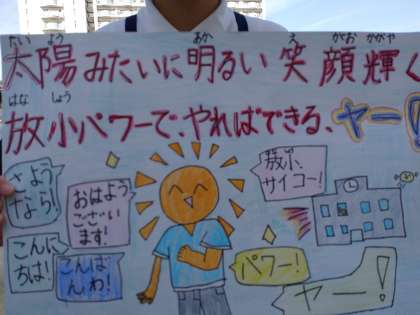 たいよう あか えがお かがや
太陽みたいに明るい笑顔輝く
はなしょう
放小パワーで、やればできる、ヤー!
さようなら!
おはよう
ござい
ます!
放小、
サイコー!
こんに
ちは!
こんば
んわ!
パワー!
ヤー!